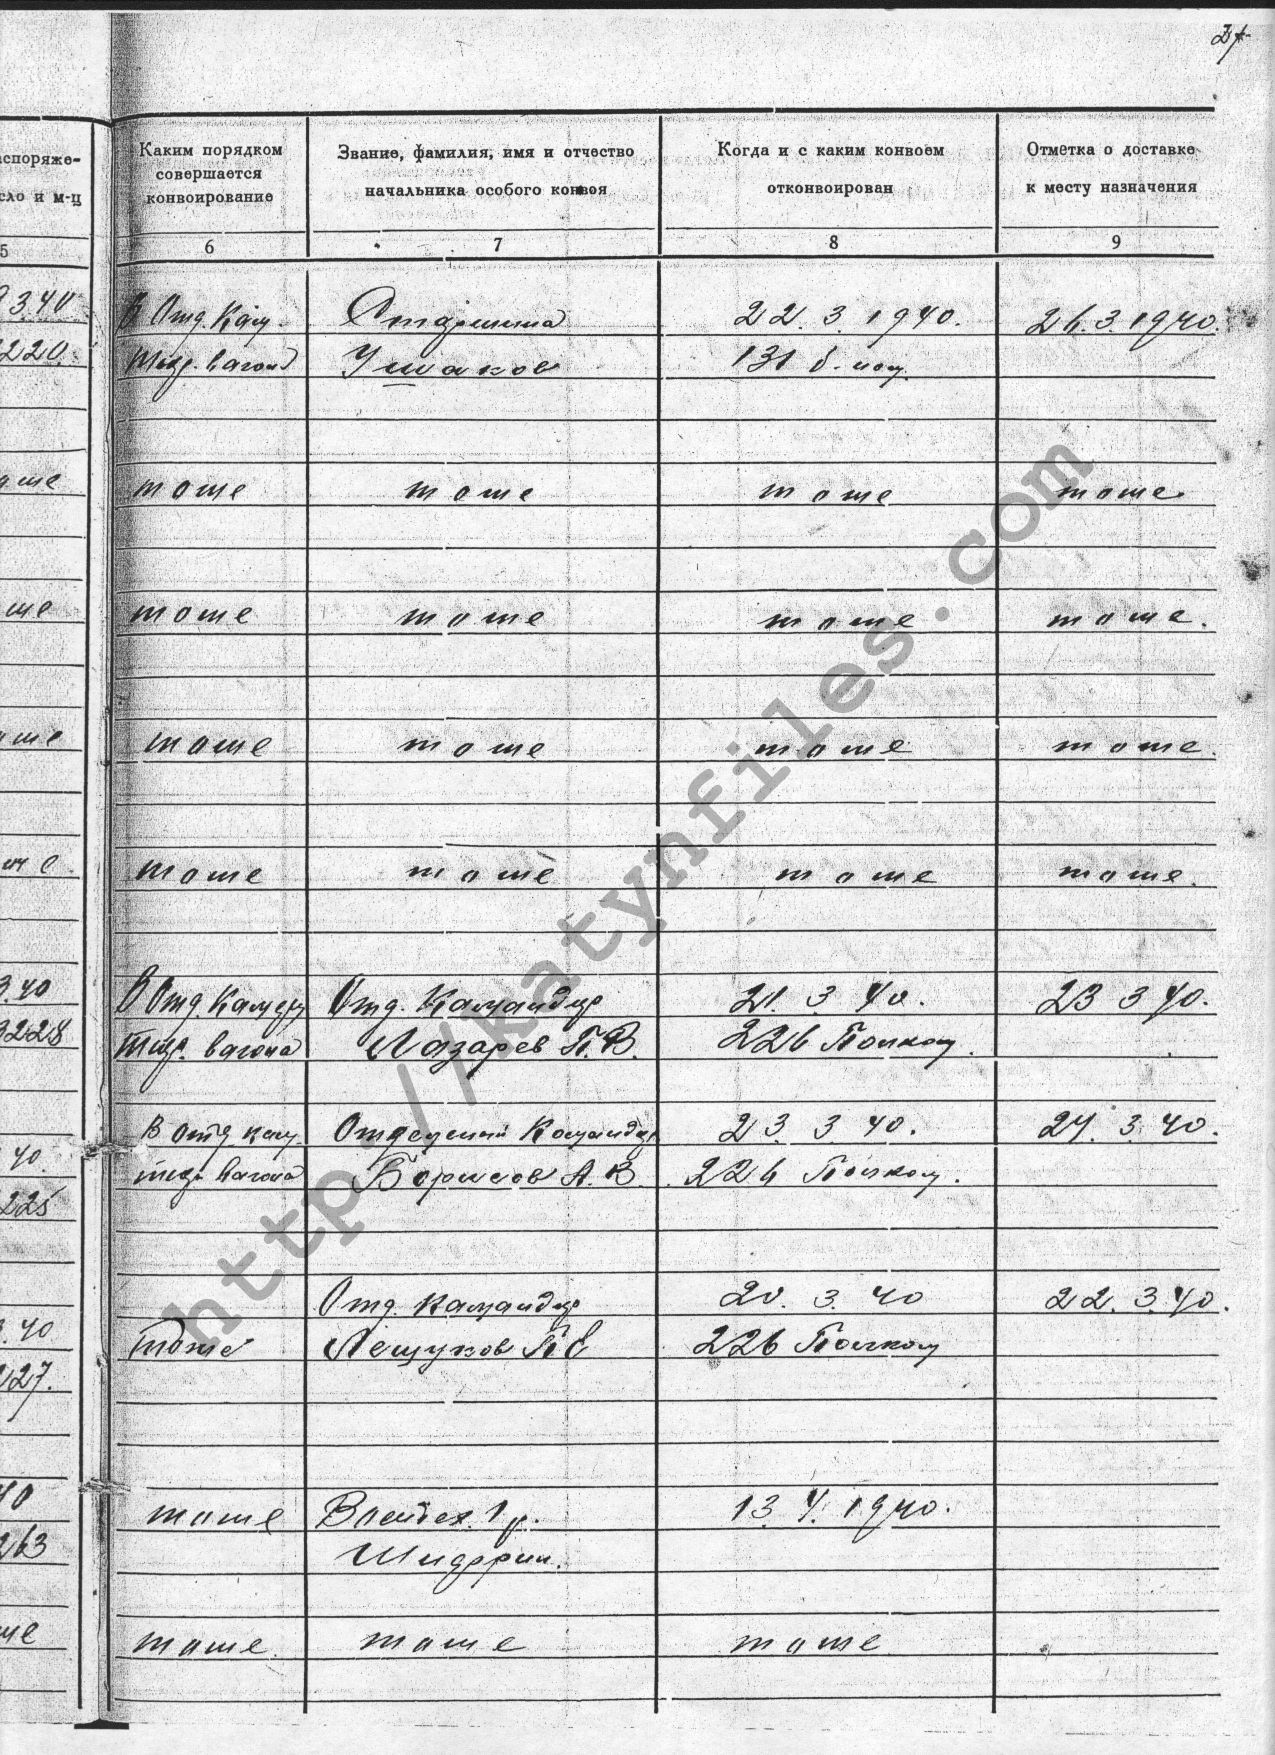 27
аспоряже-
сло и м-ц
5
Каким порядком
совершается
конвоирование
6
Звание, фамилия, имя и отчество
начальника особого конвоя
7
Когда и с каким конвоем
отконвоирован
8
Отметка о доставке
к месту назначения
9
3.40 В Отд. Кам. Старшина 22.3.1940. 26.3.1940.
220. тюр. вагона Ушаков 131 б-ном.
тоже тоже тоже тоже
ше тоже тоже тоже тоже.
ше тоже тоже тоже тоже.
ше тоже тоже тоже тоже.
3.40 В Отд. Камеру Отд. Командир 21.3.40. 23 3 40.
3228 тюр. вагона Лазарев П.В. 226 Полком.
40. В отд кам. Отделений Командир 23 3 40. 24.3.40.
225 тюр. вагона Борисов А.В. 226 Полком.
Отд. командир 20.3.40 22.3.40.
.40 тоже Лещуков П Е 226 Полком
127.
40 тоже Воентех. 1 р. 13.4.1940.
263
ше тоже тоже тоже
http://katynfiles.com